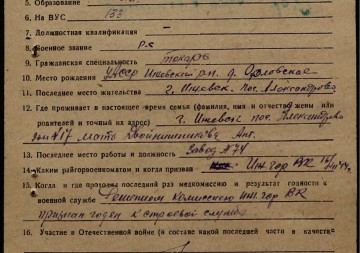 5. Образование
6. На ВУС 133
7. Должностная квалификация —
8. Военное звание р-с
9. Гражданская специальность токарь
10. Место рождения УАССР Ижевский р-н. д. Орловское
11. Последнее место жительства г. Ижевск. пос. Александрова
12. Где проживает в настоящее время семья (фамилия, имя и отчество жены или
родителей и точный их адрес) г. Ижевск пос. Александрова
дом №17 мать Двойнишникова Ант.
13. Последнее место работы и должность Завод №74
14. Каким райгорвоенкоматом и когда призван Иж. гор ВК
15. Когда и где проходил последний раз медкомиссию и результат годности к
военной службе Решением комиссии Иж. гор ВК
признан годен к строевой службе
16. Участие в Отечественной войне (в составе какой последней части и в качестве